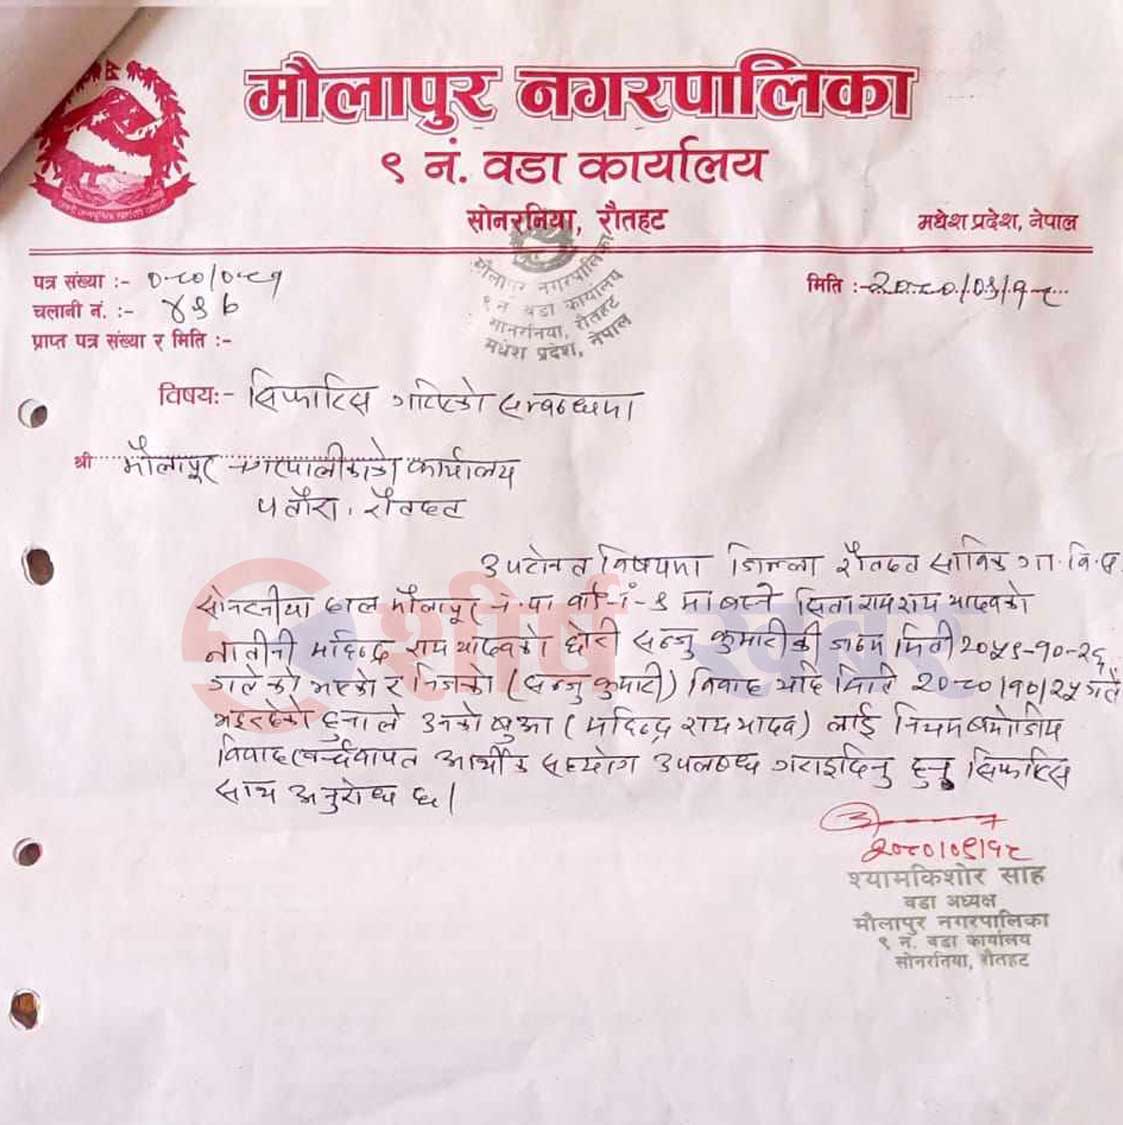 मौलापुर नगरपालिका
९ नं. वडा कार्यालय
सोनरनिया, रौतहट
मधेश प्रदेश, नेपाल
पत्र संख्या :- ०८०/०८१
मिति :- २०८०/०९/१८
चलानी नं. :- ४९७
प्राप्त पत्र संख्या र मिति :-
मौलापुर नगरपालिका
९ नं वडा कार्यालय
सोनरनिया, रौतहट
मधेश प्रदेश, नेपाल
विषय:- सिफारिस गरिएको सम्बन्धमा
श्री मौलापुर नगरपालीकाको कार्यालय
पतौरा, रौतहट
उपरोक्त विषयमा जिल्ला रौतहट साविक गा.वि.स
सोनरनीया हाल मौलापुर न.पा वार्ड नं-९ मा बस्ने सिताराम राय यादवको
नातीनी महिन्द्र राय यादवको छोरी सन्जु कुमारीकी जन्म मिती २०५९-१०-२६
गतेको भएको र निजको (सन्जु कुमारी) विवाह यहि मिति २०८०/१०/२५ गते
भइरहेको हुनाले उनको बुआ (महिन्द्र राय यादव) लाई नियम बमोजिम
विवाह खर्चवापत आर्थीक सहयोग उपलब्ध गराइदिनु हुन सिफारिस
साथ अनुरोध छ।
शीर्ष खबर
२०८०/०९/१८
श्यामकिशोर साह
वडा अध्यक्ष
मौलापुर नगरपालिका
९ नं. वडा कार्यालय
सोनरनिया, रौतहट